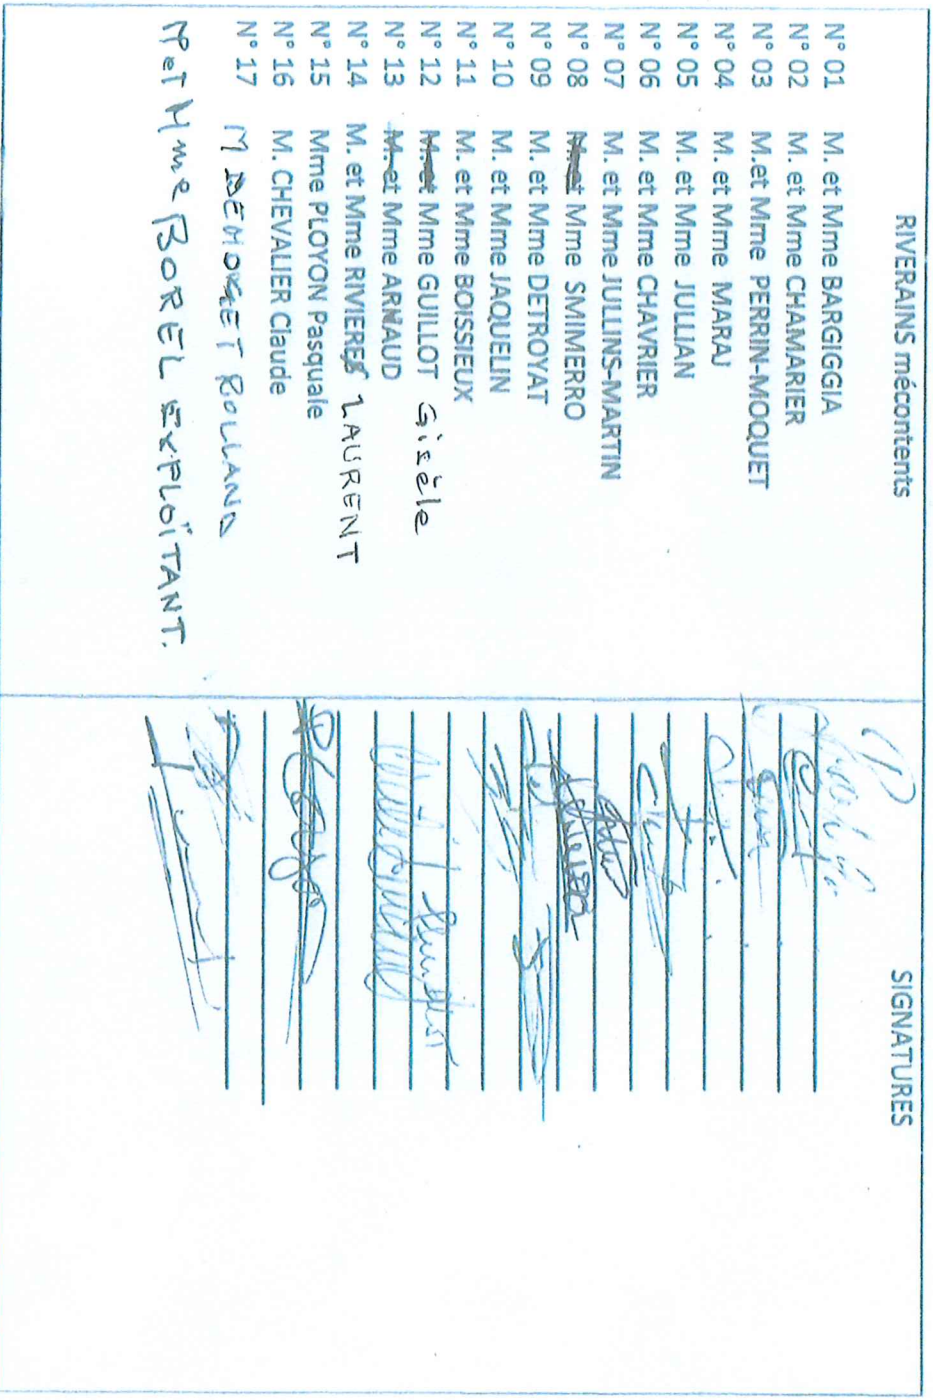 RIVERAINS mécontents
SIGNATURES
N° 01 M. et Mme BARGIGGIA
N° 02 M. et Mme CHAMARIER
N° 03 M.et Mme PERRIN-MOQUET
N° 04 M. et Mme MARAJ
N° 05 M. et Mme JULLIAN
N° 06 M. et Mme CHAVRIER
N° 07 M. et Mme JULLINS-MARTIN
N° 08 M. et Mme SMIMERRO
N° 09 M. et Mme DETROYAT
N° 10 M. et Mme JAQUELIN
N° 11 M. et Mme BOISSIEUX
N° 12 M. et Mme GUILLOT Gisèle
N° 13 M. et Mme ARNAUD
N° 14 M. et Mme RIVIERES LAURENT
N° 15 Mme PLOYON Pasquale
N° 16 M. CHEVALIER Claude
N° 17 M ROLLAND
M et Mme BOREL EXPLOÏTANT.